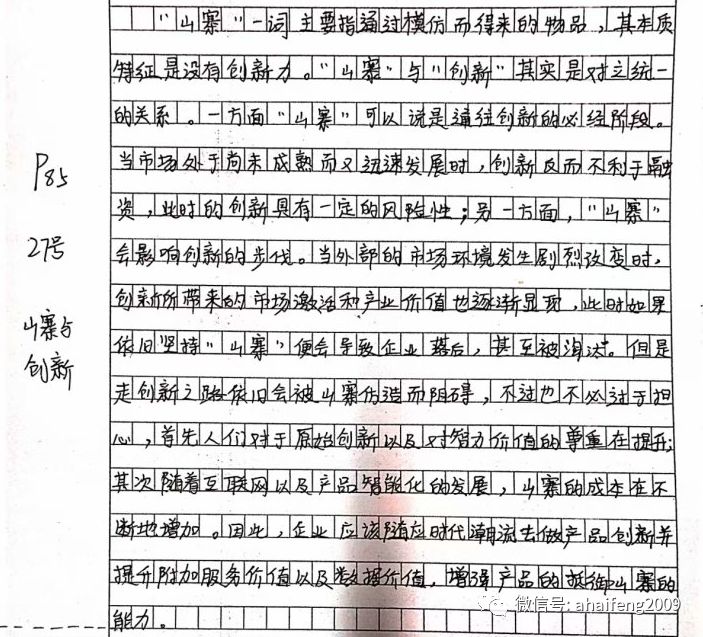 "山寨"一词主要指通过模仿而得来的物品，其本质
特征是没有创新力。"山寨"与"创新"其实是对立统一
的关系。一方面"山寨"可以说是通往创新的必经阶段。
当市场处于尚未成熟而又迅速发展时，创新反而不利于融
资，此时的创新具有一定的风险性；另一方面，"山寨"
会影响创新的步伐。当外部的市场环境发生剧烈改变时，
创新所带来的市场激活和产业价值也逐渐显现，此时如果
依旧坚持"山寨"便会导致企业落后，甚至被淘汰。但是
走创新之路依旧会被山寨仿造而阻碍，不过也不必过于担
心，首先人们对于原始创新以及对智力价值的尊重在提升；
其次随着互联网以及产品智能化的发展，山寨的成本在不
断地增加。因此，企业应该随应时代潮流去做产品创新并
提升附加服务价值以及数据价值，增强产品的抵御山寨的
能力。
P85
27号
山寨与
创新
微信号: ahaifeng2009